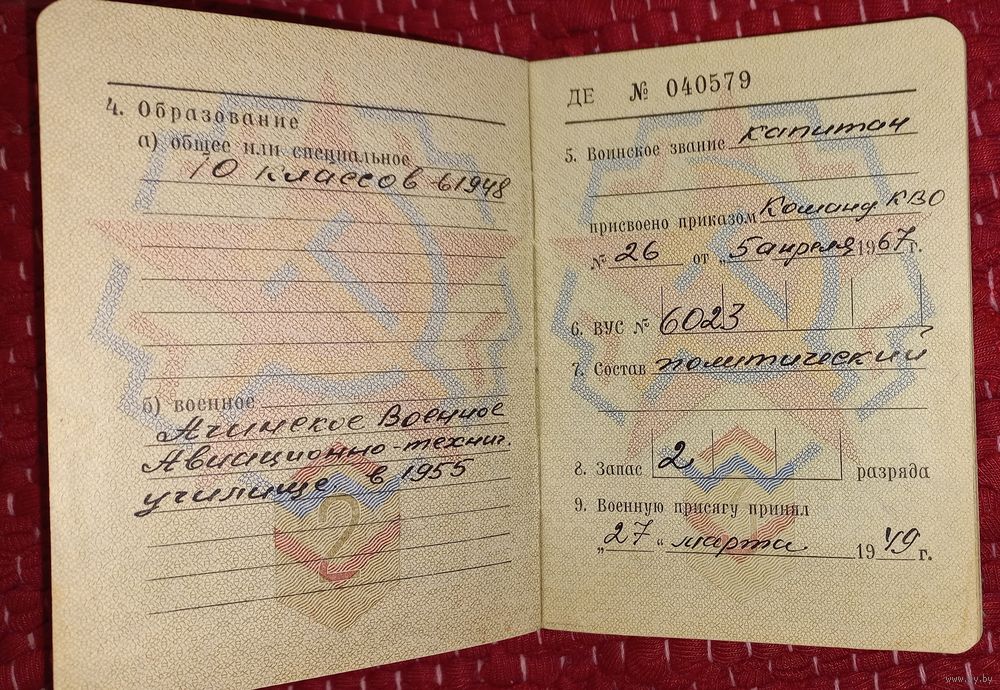 4. Образование
а) общее или специальное
10 классов в 1948
б) военное
Ачинское Военное
Авиационно-технич.
училище в 1955
2
ДЕ № 040579
5. Воинское звание капитан
присвоено приказом Команд КВО
№ 26 от „5 апреля 1967 г.
6. ВУС № 6023
7. Состав политический
8. Запас 2 разряда
9. Военную присягу принял
„27“ марта 1949 г.
www.ay.by